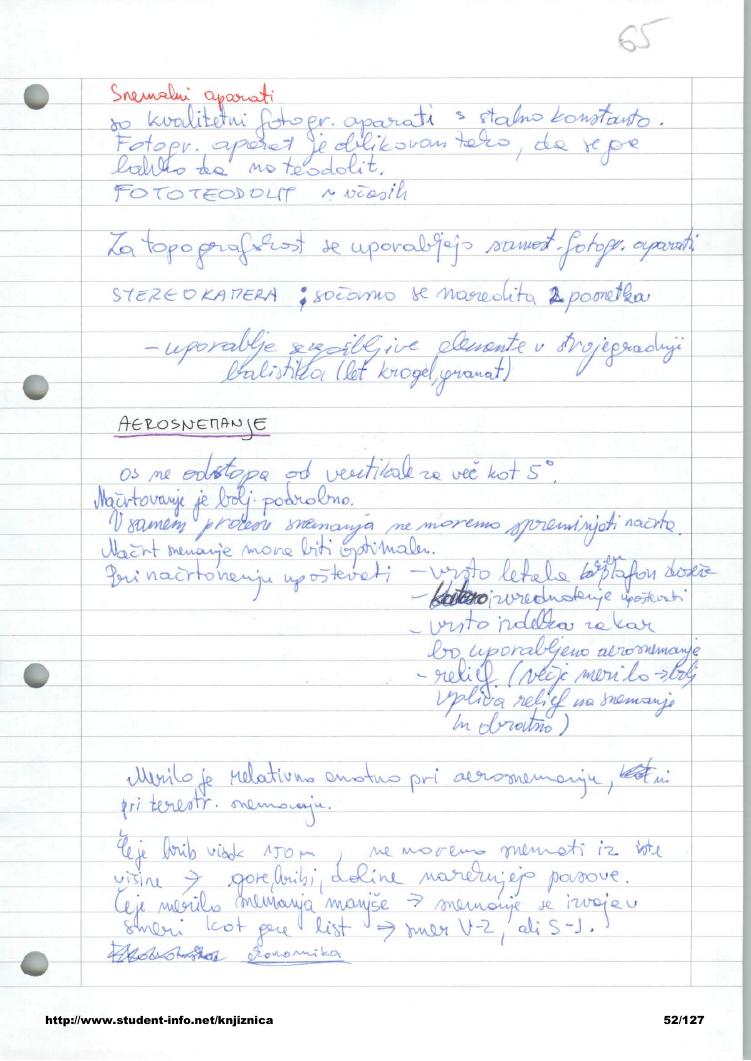 65
Snemalni aparati
so kvalitetni fotogr. aparati s stalno konstanto.
Fotogr. aparat je oblikovan tako, da se ga
lahko da na teodolit.
FOTOTEODOLIT ~ včasih
Za topografskost se uporabljajo samost. fotogr. aparati
STEREOKAMERA ; sočasno se naredita 2 posnetka
- uporablja elemente v strojegradnji
balistika (let krogel, granat)
AEROSNEMANJE
os ne odstopa od vertikale za več kot 5°.
Načrtovanje je bolj podrobno.
V samem procesu snemanja ne moremo spreminjati načrta.
Načrt snemanje mora biti optimalen.
Pri načrtovanju upoštevati - vrsto letala plafon doseže
- izvrednotenje upoštevati
- vrsto izdelka za kar
bo uporabljeno aerosnemanje
- relief (večje merilo → bolj
vpliva relief na snemanje
in obratno)
Merilo je relativno enotno pri aerosnemanju, ni
pri terestr. snemanju.
Če je hrib visok 150 m, ne moremo snemati iz iste
višine → gore, hribi, doline narekujejo pasove.
Če je merilo snemanja manjše → snemanje se izvaja v
smeri kot gre list → smer V-Z, ali S-J.
ekonomika
http://www.student-info.net/knjiznica
52/127